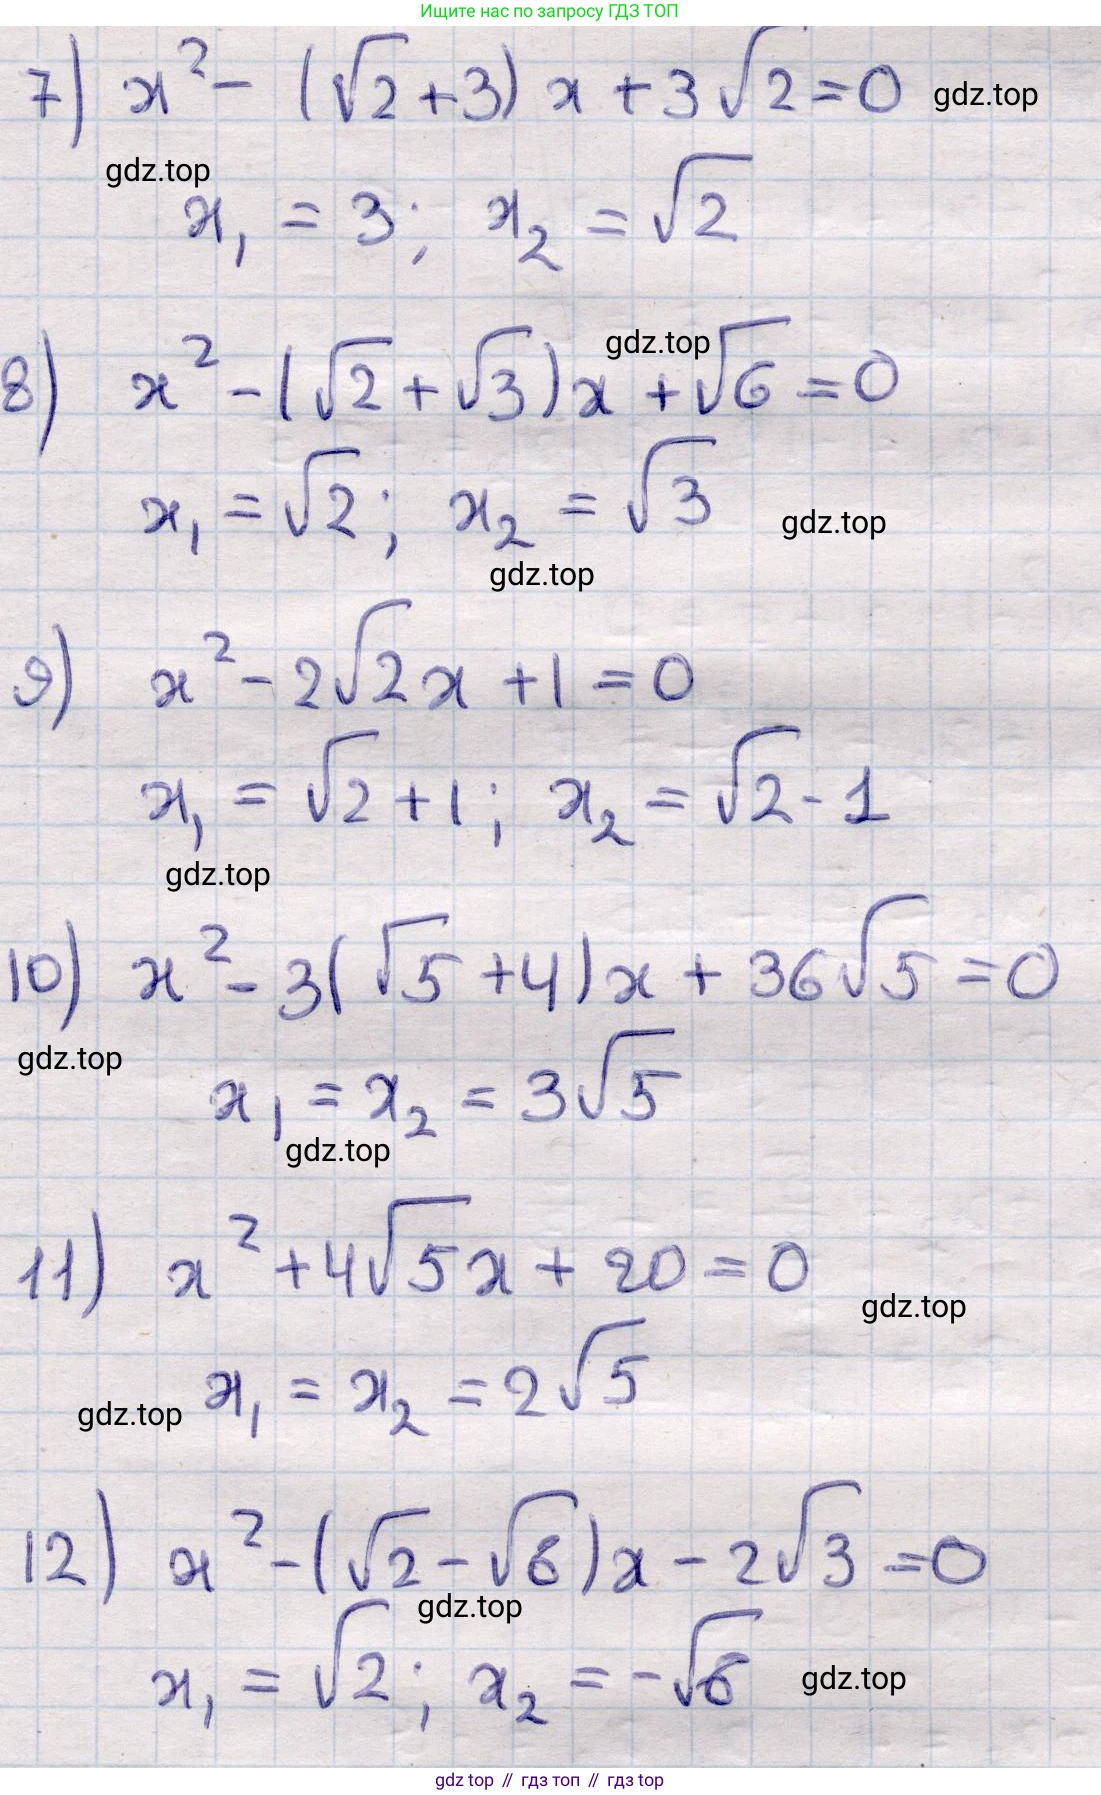 Ищите нас по запросу ГДЗ ТОП
7) x² - (√2+3) x + 3√2=0 gdz.top
gdz.top
x₁ = 3; x₂ = √2
8) x² - (√2 + √3)x + √6 = 0 gdz.top
x₁ = √2; x₂ = √3 gdz.top
gdz.top
9) x² - 2√2x + 1 = 0
x₁ = √2 + 1; x₂ = √2 - 1
gdz.top
10) x² - 3(√5 + 4)x + 36√5 = 0
gdz.top
x₁ = x₂ = 3√5
gdz.top
11) x² + 4√5x + 20 = 0
gdz.top
x₁ = x₂ = 2√5
gdz.top
12) x² - (√2 - √6)x - 2√3 = 0
gdz.top
x₁ = √2; x₂ = -√6 gdz.top
gdz top // гдз топ // gdz top